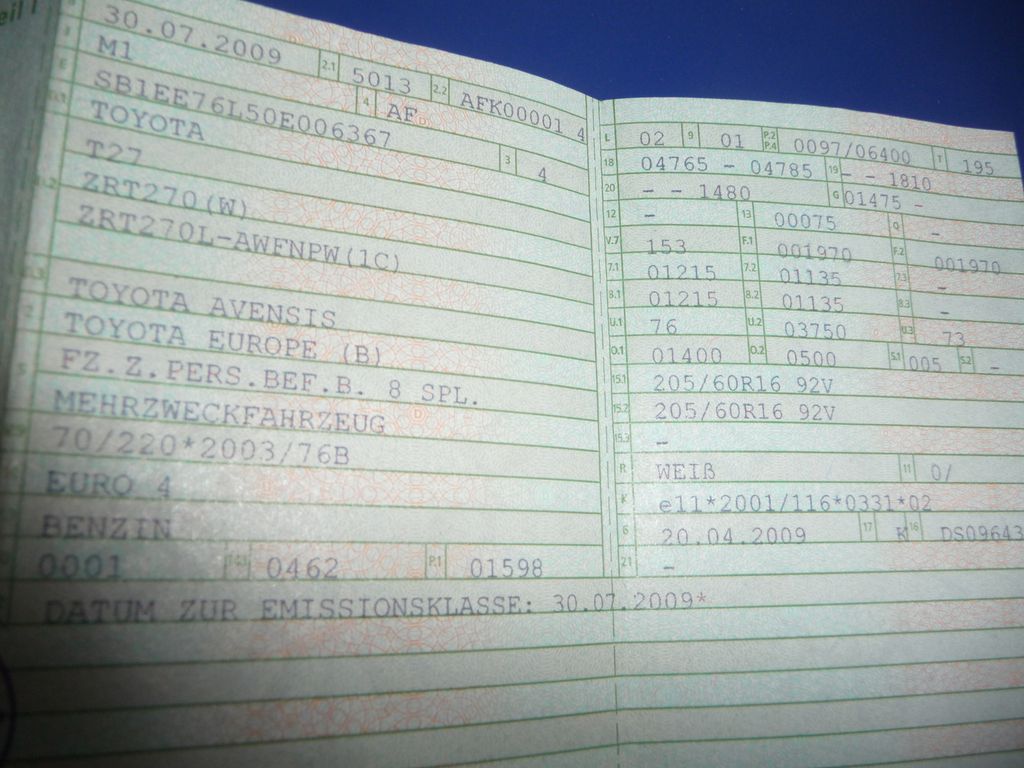 30.07.2009 2.1 5013 2.2 AFK00001 4
M1 4 AF
SB1EE76L50E006367 3 4
TOYOTA
T27
ZRT270(W)
ZRT270L-AWFNPW(1C)
TOYOTA AVENSIS
TOYOTA EUROPE (B)
FZ.Z.PERS.BEF.B. 8 SPL.
MEHRZWECKFAHRZEUG
70/220*2003/76B
EURO 4
BENZIN
0001 14.1 0462 P.1 01598
DATUM ZUR EMISSIONSKLASSE: 30.07.2009*
L 02 9 01 P.2 P.4 0097/06400 T 195
18 04765 - 04785 19 - - 1810
20 - - 1480 G 01475 -
12 - 13 00075 Q -
V.7 153 F.1 001970 F.2 001970
7.1 01215 7.2 01135 7.3 -
8.1 01215 8.2 01135 8.3 -
U.1 76 U.2 03750 U.3 73
O.1 01400 O.2 0500 S.1 005 S.2 -
15.1 205/60R16 92V
15.2 205/60R16 92V
15.3 -
R WEIß 11 0/
K e11*2001/116*0331*02
6 20.04.2009 17 K 16 DS09643
21 -